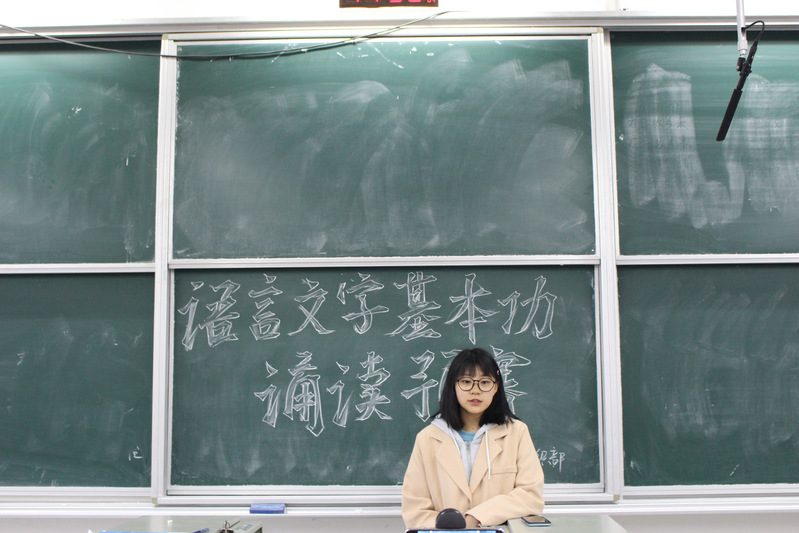 语言文字基本功
诵读预赛
织部